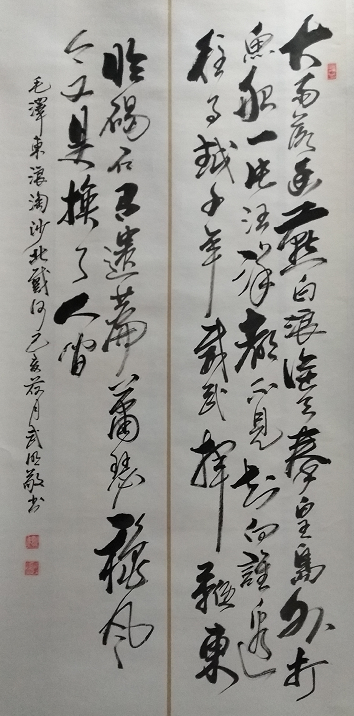 大雨落幽燕白浪滔天秦皇島外打
魚船一片汪洋都不見知向誰邊
往事越千年魏武揮鞭東
临碣石有遺篇蕭瑟秋風
今又是換了人間
毛澤東浪淘沙北戴河己亥荷月武敬书